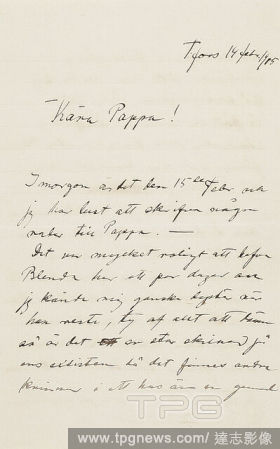 Tfors 14 febr/05
Kära Pappa!
I morgon är det den 15de Febr och
jag har lust att skrifva några
rader till Pappa. —
Det var mycket roligt att hafva
Blenda här ett par dagar
jag kände mig ganska
hon reste, ty af allt att
så är det en stor skilnad på
det finnes andra
kvinnor i ett hus än en
TPG
www.tpgnews.com/達志影像